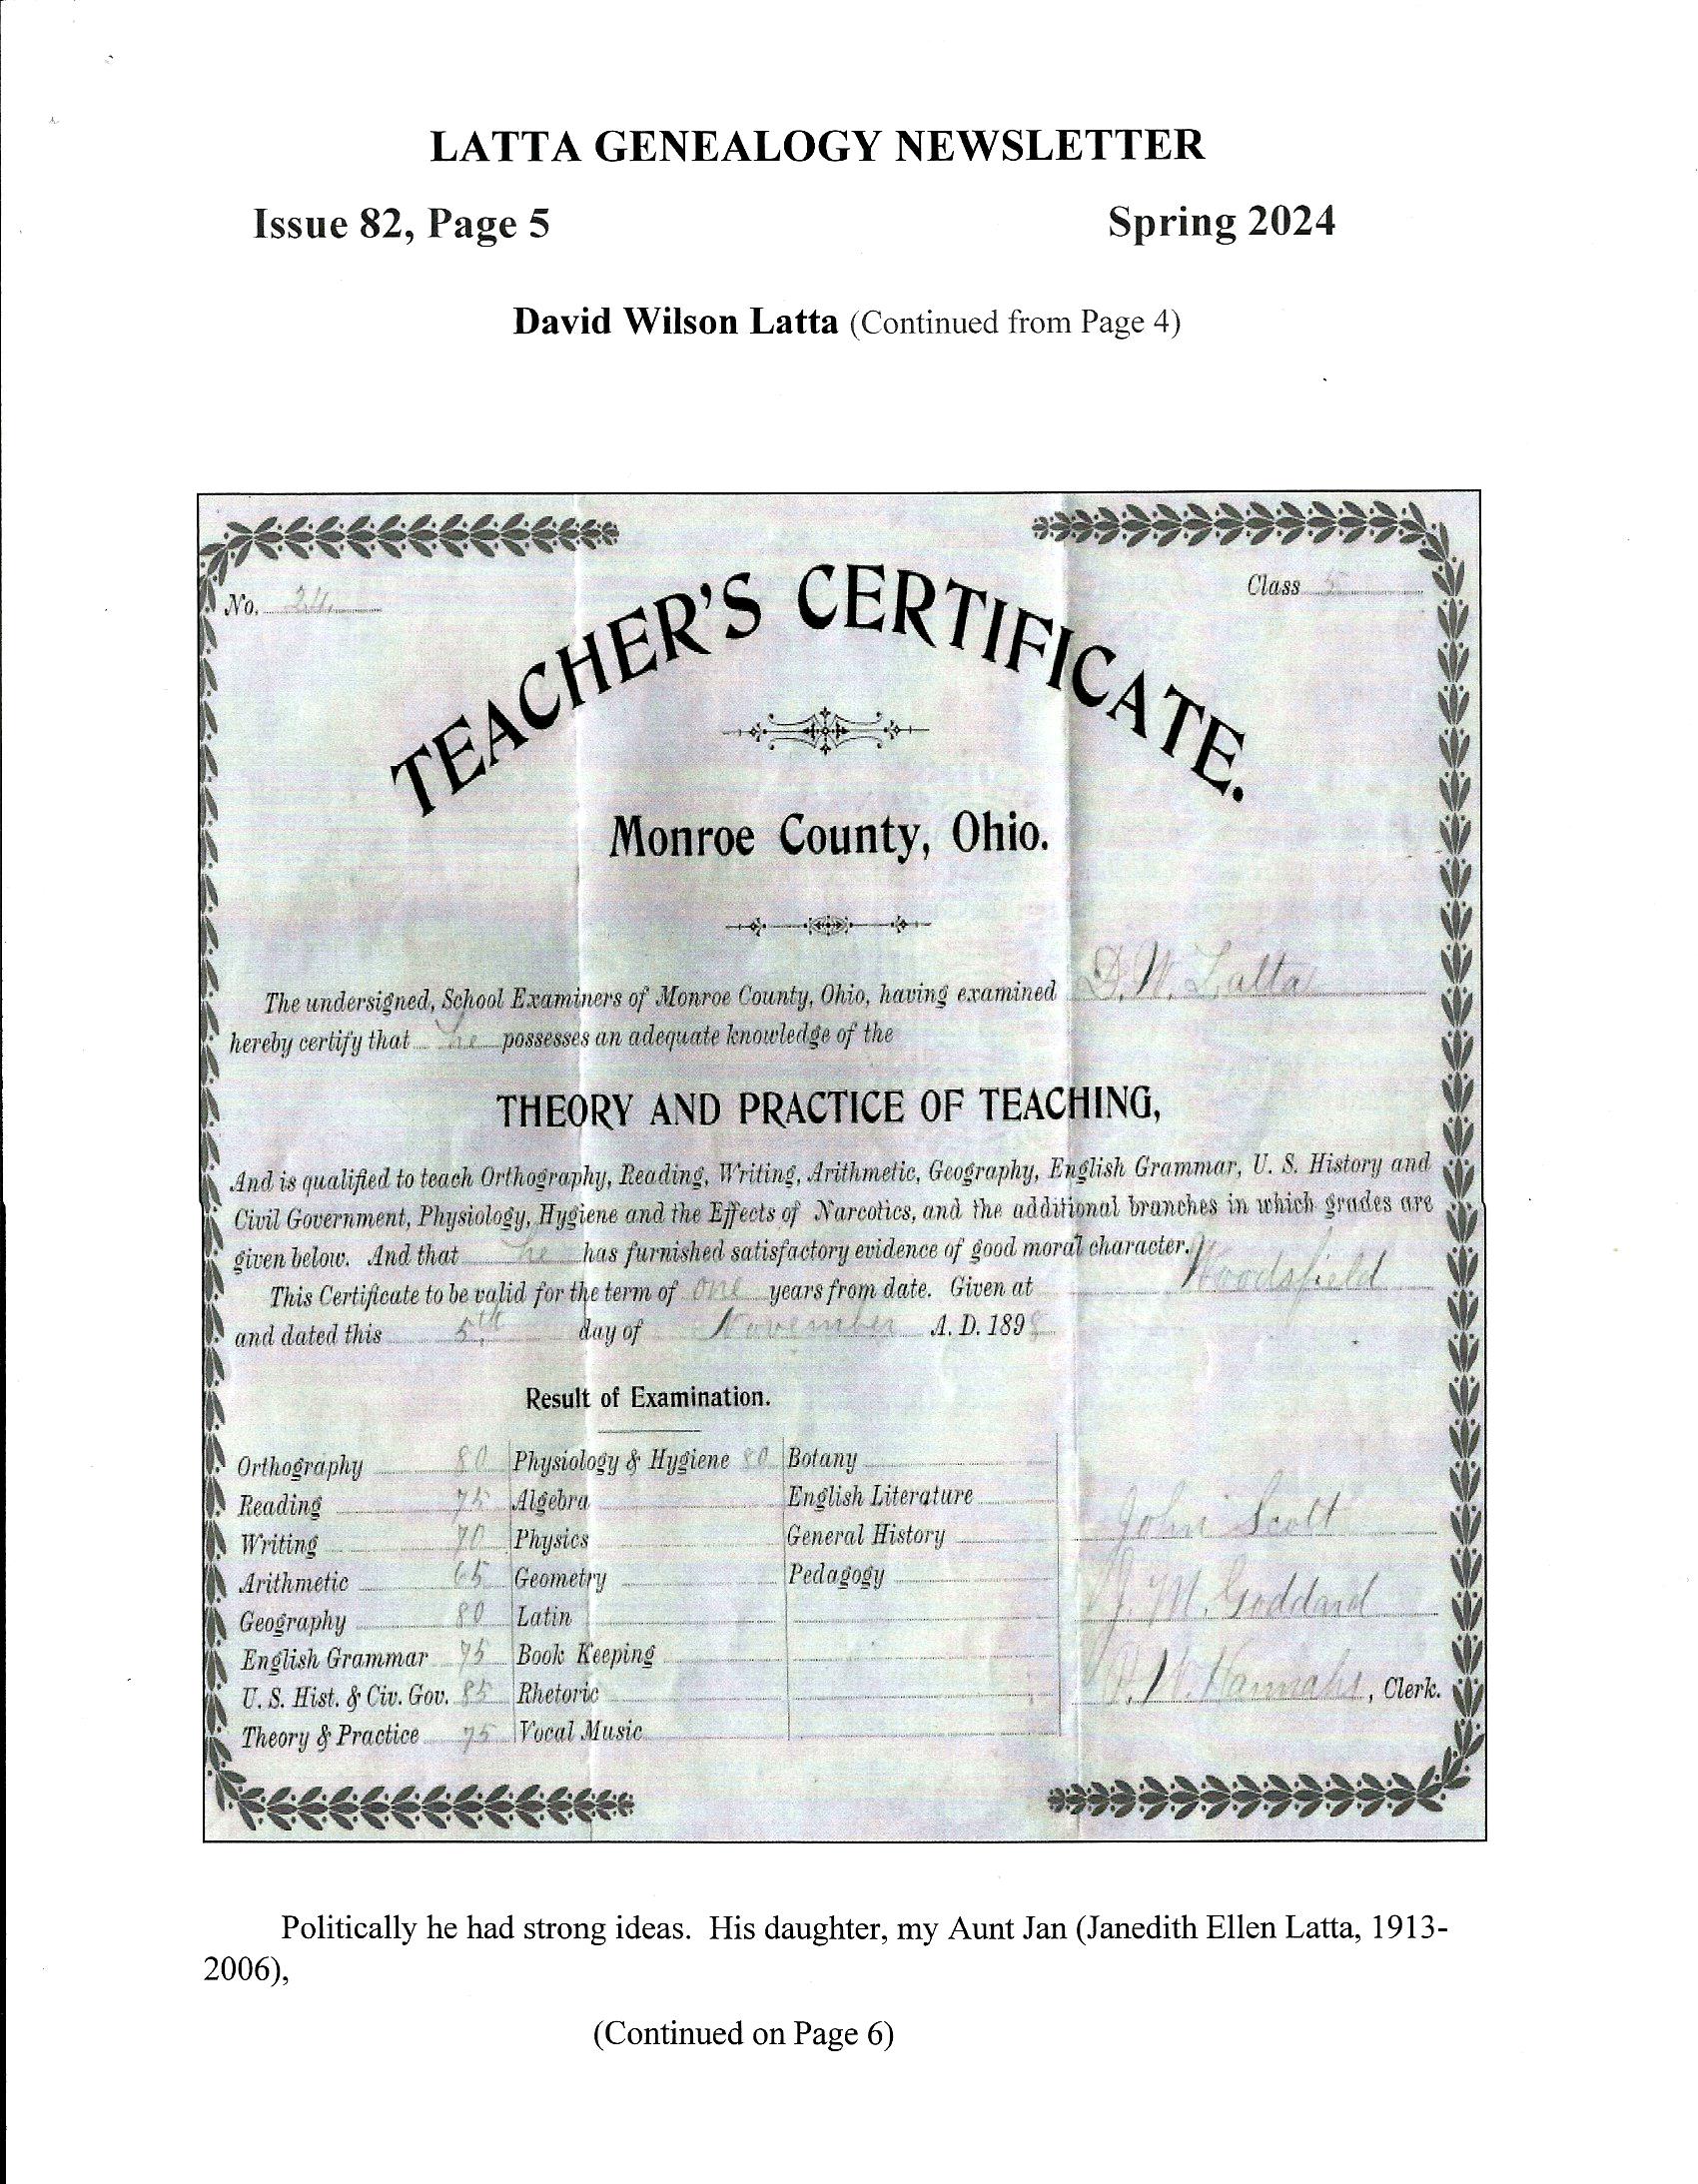 LATTA GENEALOGY NEWSLETTER
Issue 82, Page 5 Spring 2024
David Wilson Latta (Continued from Page 4)
No. Class 5
TEACHER'S CERTIFICATE.
Monroe County, Ohio.
The undersigned, School Examiners of Monroe County, Ohio, having examined D. W. Latta
hereby certify that he possesses an adequate knowledge of the
THEORY AND PRACTICE OF TEACHING,
And is qualified to teach Orthography, Reading, Writing, Arithmetic, Geography, English Grammar, U. S. History and
Civil Government, Physiology, Hygiene and the Effects of Narcotics, and the additional branches in which grades are
given below. And that he has furnished satisfactory evidence of good moral character.
This Certificate to be valid for the term of one years from date. Given at Woodsfield
and dated this 5th day of November A. D. 189
Result of Examination.
Orthography 80 Physiology & Hygiene 80 Botany
Reading 75 Algebra English Literature
Writing 70 Physics General History
Arithmetic 65 Geometry Pedagogy
Geography 80 Latin
English Grammar 75 Book Keeping
U. S. Hist. & Civ. Gov. 85 Rhetoric
Theory & Practice 75 Vocal Music
John Scott
J. M. Goddard
Hannahs, Clerk.
Politically he had strong ideas. His daughter, my Aunt Jan (Janedith Ellen Latta, 1913-
2006),
(Continued on Page 6)